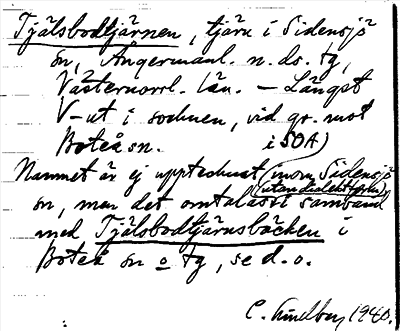 Tjälsbodtjärnen, tjärn i Sidensjö
sn, Ångermanl. n. ds. tg,
Västernorrl. län. – Längst
V-ut i socknen, vid gr. mot
Boteå sn. i SOA)
Namnet är ej upptecknat (inom Sidensjö
(utan dialektform)
sn, men det omtalas i samband
med Tjälsbodtjärnsbäcken i
Boteå sn o tg, se d. o.
C. Lindberg 1940.